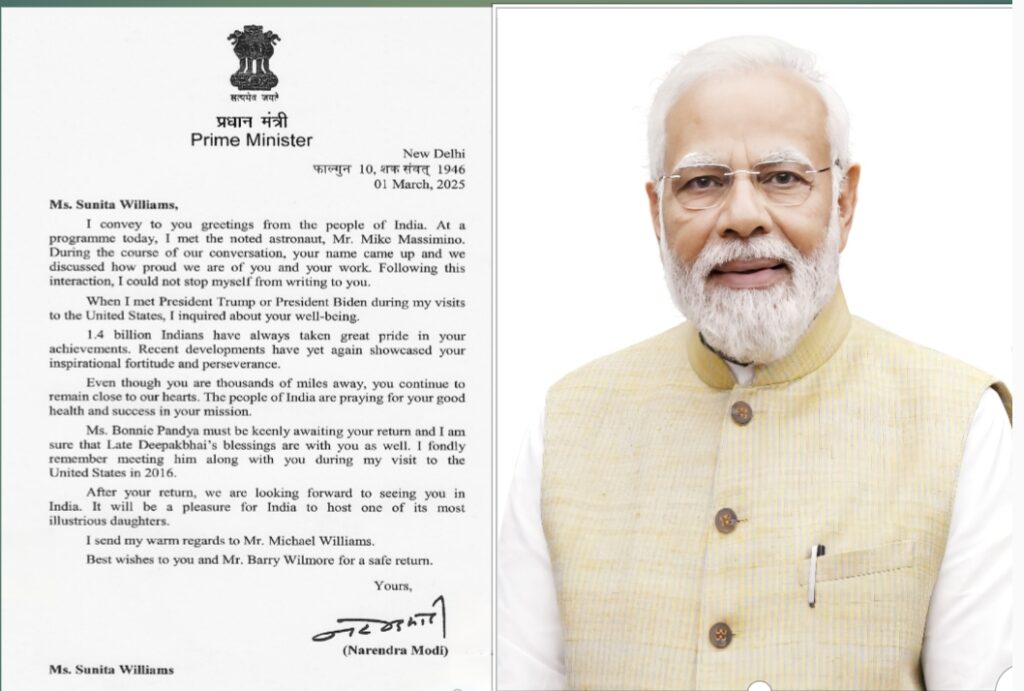 सत्यमेव जयते
प्रधान मंत्री
Prime Minister
New Delhi
फाल्गुन 10, शक संवत् 1946
01 March, 2025
Ms. Sunita Williams,
I convey to you greetings from the people of India. At a
programme today, I met the noted astronaut, Mr. Mike Massimino.
During the course of our conversation, your name came up and we
discussed how proud we are of you and your work. Following this
interaction, I could not stop myself from writing to you.
When I met President Trump or President Biden during my visits
to the United States, I inquired about your well-being.
1.4 billion Indians have always taken great pride in your
achievements. Recent developments have yet again showcased your
inspirational fortitude and perseverance.
Even though you are thousands of miles away, you continue to
remain close to our hearts. The people of India are praying for your good
health and success in your mission.
Ms. Bonnie Pandya must be keenly awaiting your return and I am
sure that Late Deepakbhai's blessings are with you as well. I fondly
remember meeting him along with you during my visit to the
United States in 2016.
After your return, we are looking forward to seeing you in
India. It will be a pleasure for India to host one of its most
illustrious daughters.
I send my warm regards to Mr. Michael Williams.
Best wishes to you and Mr. Barry Wilmore for a safe return.
Yours,
नरेन्द्र मोदी
(Narendra Modi)
Ms. Sunita Williams